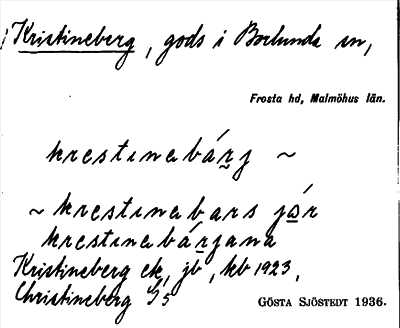 Kristineberg, gods i Borlunda sn,
Frosta hd, Malmöhus län.
krestinabárj ~
~ krestinabars jår
krestinabárjana
Kristineberg ek, jb, kb 1923,
Christineberg G5
GÖSTA SJÖSTEDT 1936.